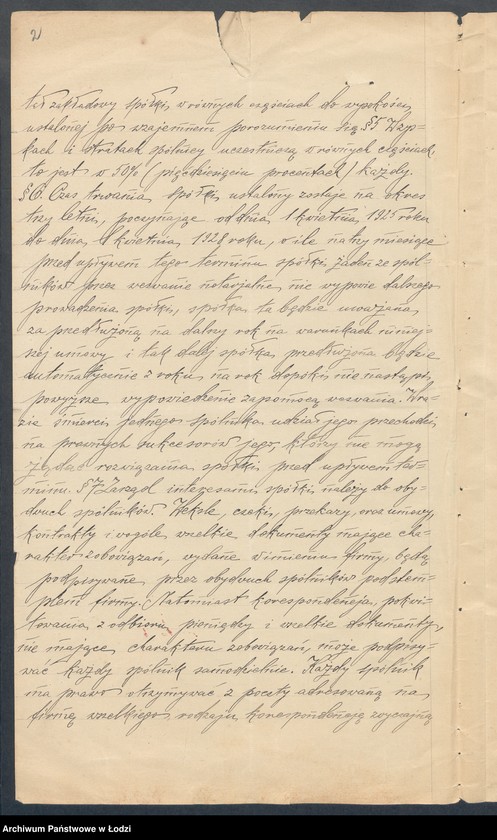 2)
tał zakładowy spółki, w równych częściach do wysokości
ustalonej po wzajemnem porozumieniu się. §5 W zys-
kach i stratach spólnicy uczestniczą w równych częściach
to jest w 50% (pięćdziesięciu procentach) każdy.
§6. Czas trwania spółki ustalony zostaje na okres
trzy letni, poczynając od dnia 1 kwietnia 1925 roku
do dnia 1 kwietnia 1928 roku, o ile na trzy miesiące
przed upływem tego terminu spółki żaden ze spól-
ników przez wezwanie notarjalne nie wypowie dalszego
prowadzenia spółki, spółka ta będzie uważana
za przedłużoną na dalszy rok na warunkach niniej-
szej umowy i tak dalej spółka przedłużona będzie
automatycznie z roku na rok dopóki nie nastąpi
powyższe wypowiedzenie zapomocą wezwania. W ra-
zie śmierci jednego spólnika udział jego przechodzi
na prawnych sukcesorów jego, którzy nie mogą
żądać rozwiązania spółki przed upływem ter-
minu. §7 Zarząd interesami spółki należy do oby-
dwuch spólników. Weksle, czeki, przekazy, oraz umowy,
kontrakty i wogóle wszelkie dokumenty mające cha-
rakter zobowiązań, wydane w imieniu firmy, będą
podpisywane przez obydwuch spólników pod stem-
plem firmy. Natomiast korespondencja, pokwi-
towania z odbioru pieniędzy i wszelkie dokumenty,
nie mające charakteru zobowiązań, może podpisy-
wać każdy spólnik samodzielnie. Każdy spólnik
ma prawo otrzymywać z poczty adresowaną na
firmę wszelkiego rodzaju korespondencję zwyczajną
Archiwum Państwowe w Łodzi